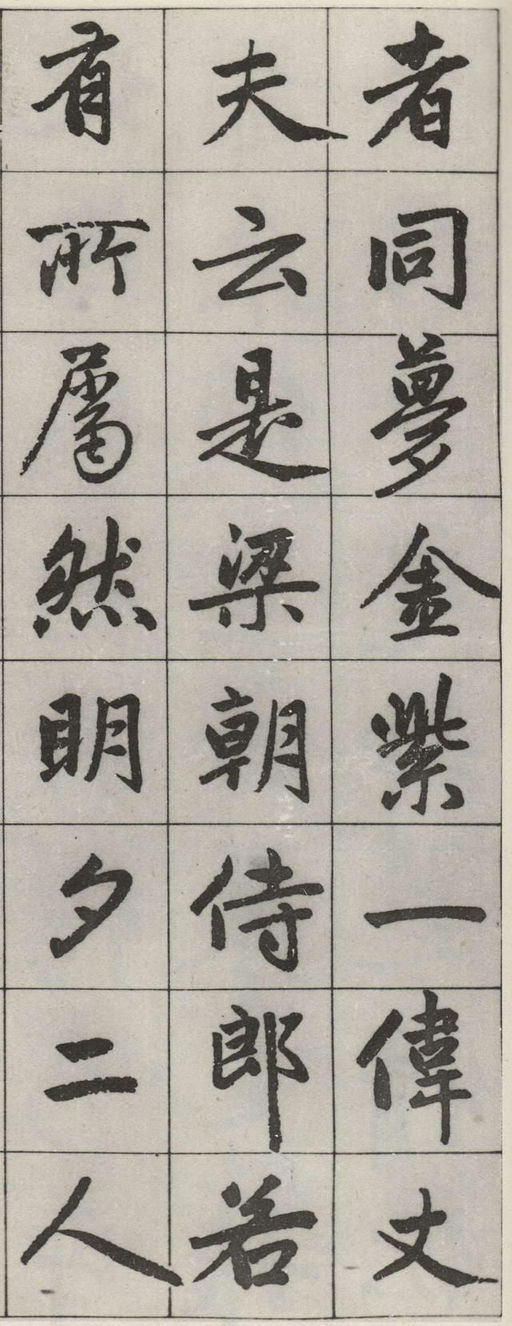 者同夢金紫一偉丈
夫云是梁朝侍郎若
有所屬然明夕二人